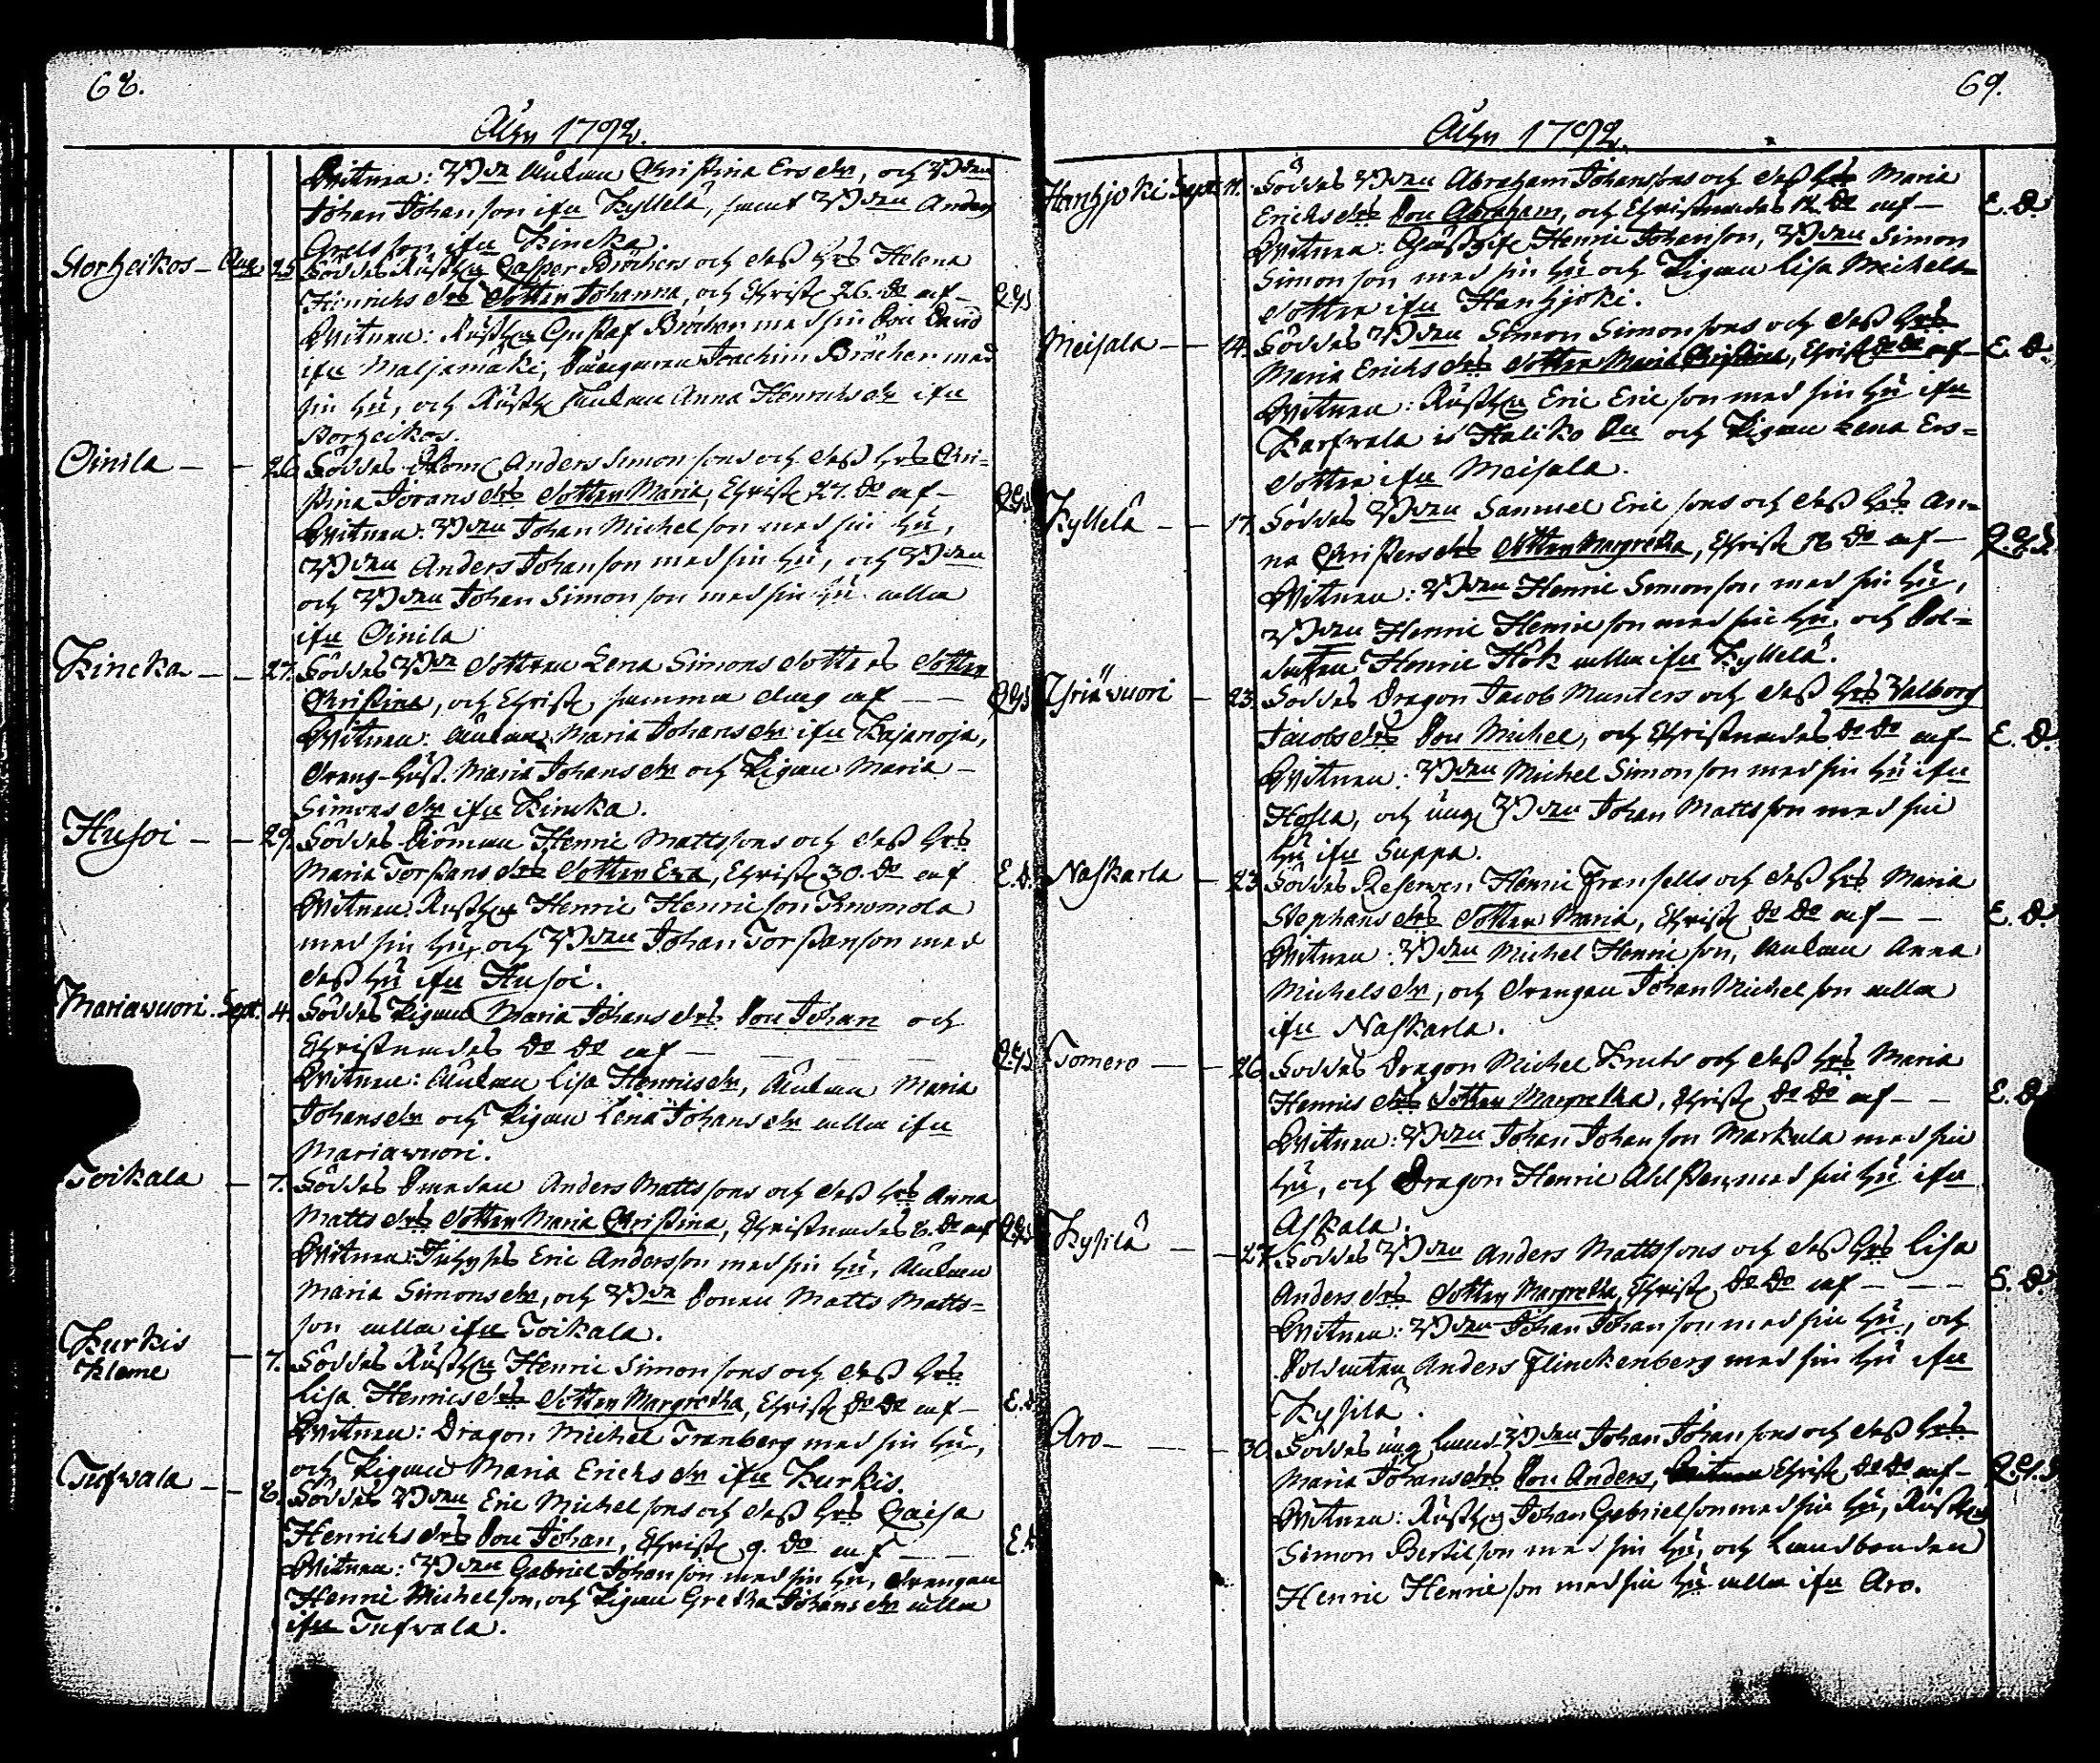 68.
Åhr 1792.
Wittnen: Bdr Änkan Christina Ersdr, och Bden
Johan Johanson ifrn Kyllelä, samt Bden Anders
son ifrn Kincka.
Storheikos - Aug. 25. Föddes Rusth Casper Bröchers och dess hrs Helena
Hinrichs drs dotter Johanna, och Christ 26. do af -
Wittnen: Rusth Gustaf Bröcher med sin Son David
ifrn Maljamäki, Joachim Bröcher med
sin hu, och Rusth Änkan Anna Henrichsdr ifrn
Storheikos.
Oinila - - 26. Föddes Anders Simonsons och dess hrs Chri-
stina Jörans drs dotter Maria, Christ 27. do af -
Wittnen: Bden Johan Michelson med sin hu,
Bden Anders Johanson med sin hu, och Bden
och Bden Johan Simonson med sin hu alla
ifrn Oinila
Kincka - - 27. Föddes Bde dottren Lena Simons dotters dotter
Christina, och Christ samma dag af - -
Wittnen: Änkan Maria Johansdr ifrn Kajanoja,
Dreng-hust. Maria Johansdr och Pigan Maria -
Simonsdr ifrn Kincka.
Husoi - - 29. Föddes Henric Mattssons och dess hrs
Maria Torstans drs dotter Eva, Christ 30. do af E. D.
Wittnen: Rusth Henric Henricson
med sin hu, och Bden Johan Torstanson med
dess hu ifrn Husoi.
Mariawuori. Sept. 4. Föddes Pigans Maria Johans drs Son Johan och
Christnades do do af -
Wittnen: Änkan Lisa Henricsdr, Änkan Maria
Johansdr och Pigan Lena Johansdr alla ifrn
Mariawuori.
Toikala - 7. Föddes Smeden Anders Mattssons och dess hrs Anna
Matts drs dotter Maria Christina, Christnades 8. do af
Wittnen: Inhyses Eric Andersson med sin hu, Änkan
Maria Simonsdr, och Bde Sonen Matts Matts-
son alla ifrn Toikala.
Kurkis
Kleme - 7. Föddes Rusth Henric Simonsons och dess hrs
Lisa Henricsdrs dotter Margretha, Christ do do af - E. D.
Wittnen: Dragon Michel Tranberg med sin hu,
och Pigan Maria Erichsdr ifrn Kurkis.
Tufwala - - 8. Föddes Bden Eric Michelsons och dess hrs Caisa
Henrichs drs Son Johan, Christ 9. do af - - E. D.
Wittnen: Bden Gabriel Johanson med sin hu, drengen
Henric Michelson, och Pigan Gretha Johansdr alla
ifrn Tufwala.
69.
Åhr 1792.
Hanhjoki Sept. 11. Föddes Bden Abraham Johansons och dess hrs Maria
Erichsdrs Son Abraham, och Christnades 12. do af - E. D.
Wittnen: Henric Johanson, Bden Simon
Simonson med sin hu och Pigan Lisa Michels-
dotter ifrn Hanhjoki.
Meisala - - 14. Föddes Bden Simon Simonsons och dess hrs
Maria Erichs drs dotter Maria Christina, Christ do do af - E. D.
Wittnen: Rusth Eric Ericson med sin hu ifrn
Karfwala i Haliko Sn och Pigan Lena Ers-
dotter ifrn Meisala.
Kyllelä - - 17. Föddes Bden Samuel Ericsons och dess hrs An-
na Christersdrs dotter Margretha, Christ 18 do af -
Wittnen: Bden Henric Simonson med sin hu,
Bden Henric Henricson med sin hu, och Sol-
daten Henric Hök alla ifrn Kyllelä.
Yriäwuori - 23. Föddes Dragon Jacob Munters och dess hrs Valborg
Jacobsdrs Son Michel, och Christnades do do af - E. D.
Wittnen: Bden Michel Simonson med sin hu ifrn
Hosla, och ung Bden Johan Mattsson med sin
hu ifrn Suppa.
Naskarla - 23. Föddes Reserven Henric Fransells och dess hrs Maria
Stephansdrs dotter Maria, Christ do do af - - E. D.
Wittnen: Bden Michel Henricson, Änkan Anna
Michelsdr, och drengen Johan Michelson alla
ifrn Naskarla.
Tomero - - 26. Föddes Dragon Michel och dess hrs Maria
Henricsdrs dotter Margretha, Christ do do af - - E. D.
Wittnen: Bden Johan Johanson Markula med sin
hu, och Dragon Henric Ahlsten med sin hu ifrn
Askala.
Kysilä - - 27. Föddes Bden Anders Mattssons och dess hrs Lisa
Anders drs dotter Margretha, Christ do do af - - - E. D.
Wittnen: Bden Johan Johanson med sin hu, och
Soldaten Anders Flinckenberg med sin hu ifrn
Kysilä.
Aro - - - 30. Föddes ung Land-Bden Johan Johansons och dess hrs
Maria Johansdrs Son Anders, Christ do do af -
Wittnen: Rusth Johan Gabrielson med sin hu, Rusth
Simon Bertilson med sin hu, och Landbonden
Henric Henricson med sin hu alla ifrn Aro.